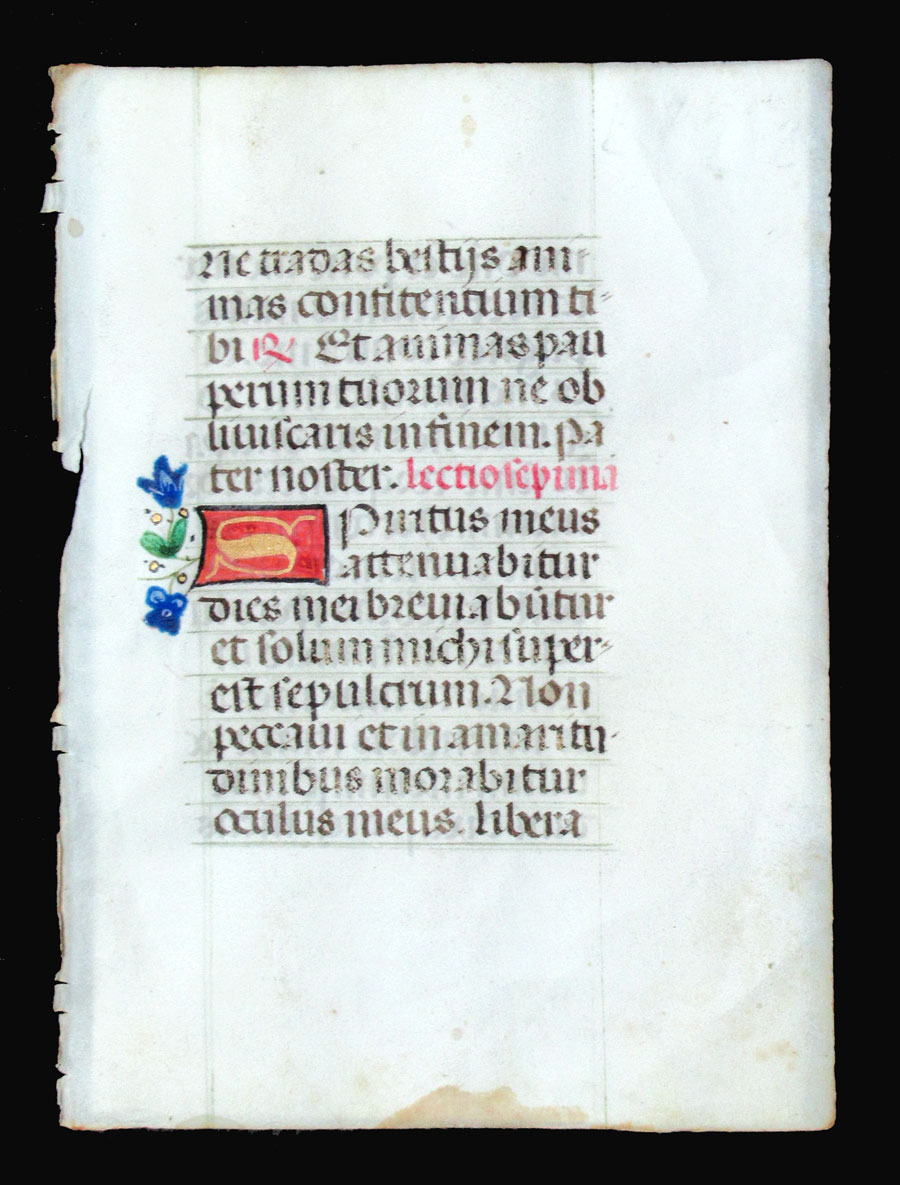 Ne tradas bestijs ani-
mas confitentium ti-
bi ℟ Et animas pau
perum tuorum ne ob
liuiscaris in finem. Pa
ter noster. lectio septima
SPiritus meus
attenuabitur
dies mei breuiabūtur
et solum michi super-
est sepulcrum. Non
peccaui et in amaritu-
dinibus morabitur
occulus meus. libera